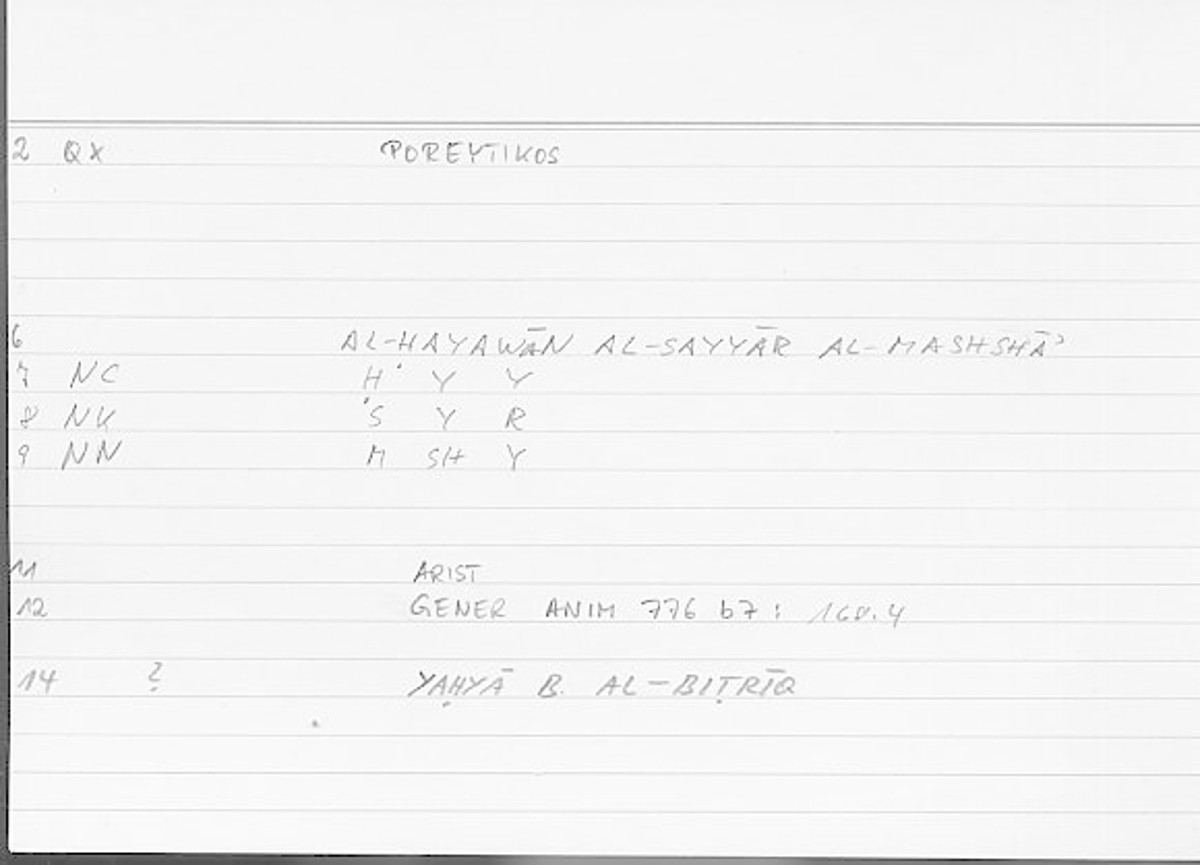 2 QX POREYTIKOS
6 AL-HAYAWĀN AL-SAYYĀR AL-MASHSHĀʾ
7 NC Ḥ Y Y
8 NK S Y R
9 NN M SH Y
11 ARIST
12 GENER ANIM 776 b7: 168.4
14 ? YAḤYĀ B. AL-BIṬRĪQ